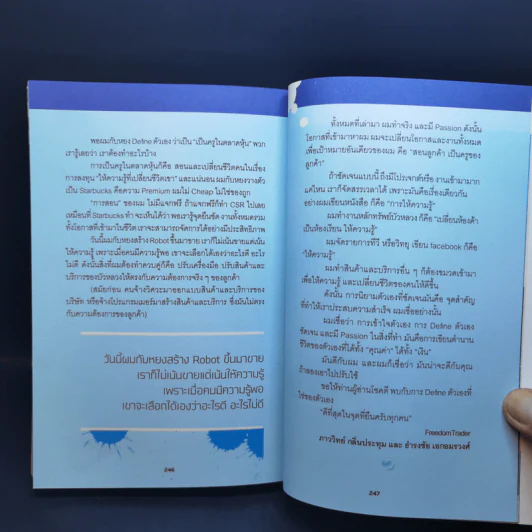 พอผมกับหยง Define ตัวเอง ว่าเป็น "เป็นครูในตลาดหุ้น" พวก
เรารู้เลยว่า เราต้องทำอะไรบ้าง
การเป็นครูในตลาดหุ้นก็คือ สอนและเปลี่ยนชีวิตคนในเรื่อง
การลงทุน "ให้ความรู้ที่เปลี่ยนชีวิตเขา" และแน่นอน ผมกับหยงวางตัว
เป็น Starbucks คือความ Premium ผมไม่ Cheap ไม่ใช่ของถูก
"การสอน" ของผม ไม่มีแจกฟรี ถ้าแจกฟรีก็ทำ CSR ไปเลย
เหมือนที่ Starbucks ทำ จะเห็นได้ว่า พอเรารู้จุดยืนชัด งานทั้งหมดรวม
ทั้งโอกาสที่เข้ามาในชีวิต เราจะสามารถจัดการได้อย่างมีประสิทธิภาพ
วันนี้ผมกับหยงสร้าง Robot ขึ้นมาขาย เราก็ไม่เน้นขายแต่เน้น
ให้ความรู้ เพราะเมื่อคนมีความรู้พอ เขาจะเลือกได้เองว่าอะไรดี อะไรไม่
ดี ดังนั้นสิ่งที่ผมต้องทำควบคู่ก็คือ ปรับเครื่องมือ ปรับสินค้าและ
บริการของบัวหลวงให้ตรงกับความต้องการจริง ๆ ของลูกค้า
(สมัยก่อน คนจ้างวิศวะมาออกแบบสินค้าและบริการของ
บริษัท หรือจ้างโปรแกรมเมอร์มาสร้างสินค้าและบริการ ซึ่งมันไม่ตรง
กับความต้องการของลูกค้า)
วันนี้ผมกับหยงสร้าง Robot ขึ้นมาขาย
เราก็ไม่เน้นขายแต่เน้นให้ความรู้
เพราะเมื่อคนมีความรู้พอ
เขาจะเลือกได้เองว่าอะไรดี อะไรไม่ดี
246
ทั้งหมดที่เล่ามา ผมทำจริง และมี Passion ดังนั้น
โอกาสที่เข้ามาหาผม ผมจะเปลี่ยนโอกาสและงานทั้งหมด
เพื่อเป้าหมายอันเดียวของผม คือ "สอนลูกค้า เป็นครูของ
ลูกค้า"
ถ้าชัดเจนแบบนี้ ถึงมีโปรเจกต์หรือ งานเข้ามามาก
แค่ไหน เราก็จัดสรรเวลาได้ เพราะมันคือเรื่องเดียวกัน
อย่างผมเขียนหนังสือ ก็คือ "การให้ความรู้"
ผมทำงานหลักทรัพย์บัวหลวง ก็คือ "เปลี่ยนห้องค้า
เป็นห้องเรียน ให้ความรู้"
ผมจัดรายการทีวี หรือวิทยุ เขียน facebook ก็คือ
"ให้ความรู้"
ผมทำสินค้าและบริการอื่น ๆ ก็ต้องขมวดเข้ามา
เพื่อให้ความรู้ และเปลี่ยนชีวิตของคนให้ดีขึ้น
ดังนั้น การนิยามตัวเองที่ชัดเจนมันคือ จุดสำคัญ
ที่ทำให้เราประสบความสำเร็จ ผมเชื่ออย่างนั้น
ผมเชื่อว่า การเข้าใจตัวเอง การ Define ตัวเอง
ชัดเจน และมี Passion ในสิ่งที่ทำ มันคือการเขียนตำนาน
ชีวิตของตัวเองที่ได้ทั้ง "คุณค่า" ได้ทั้ง "เงิน"
มันดีกับผม และผมก็เชื่อว่า มันน่าจะดีกับคุณ
ถ้าลองเอาไปปรับใช้
ขอให้ท่านผู้อ่านโชคดี พบกับการ Define ตัวเองที่
ใช่ของตัวเอง
"ดีที่สุดในจุดที่ยืนครับทุกคน"
FreedomTrader
ภาววิทย์ กลิ่นประทุม และ ธำรงชัย เอกอมรวงศ์
247